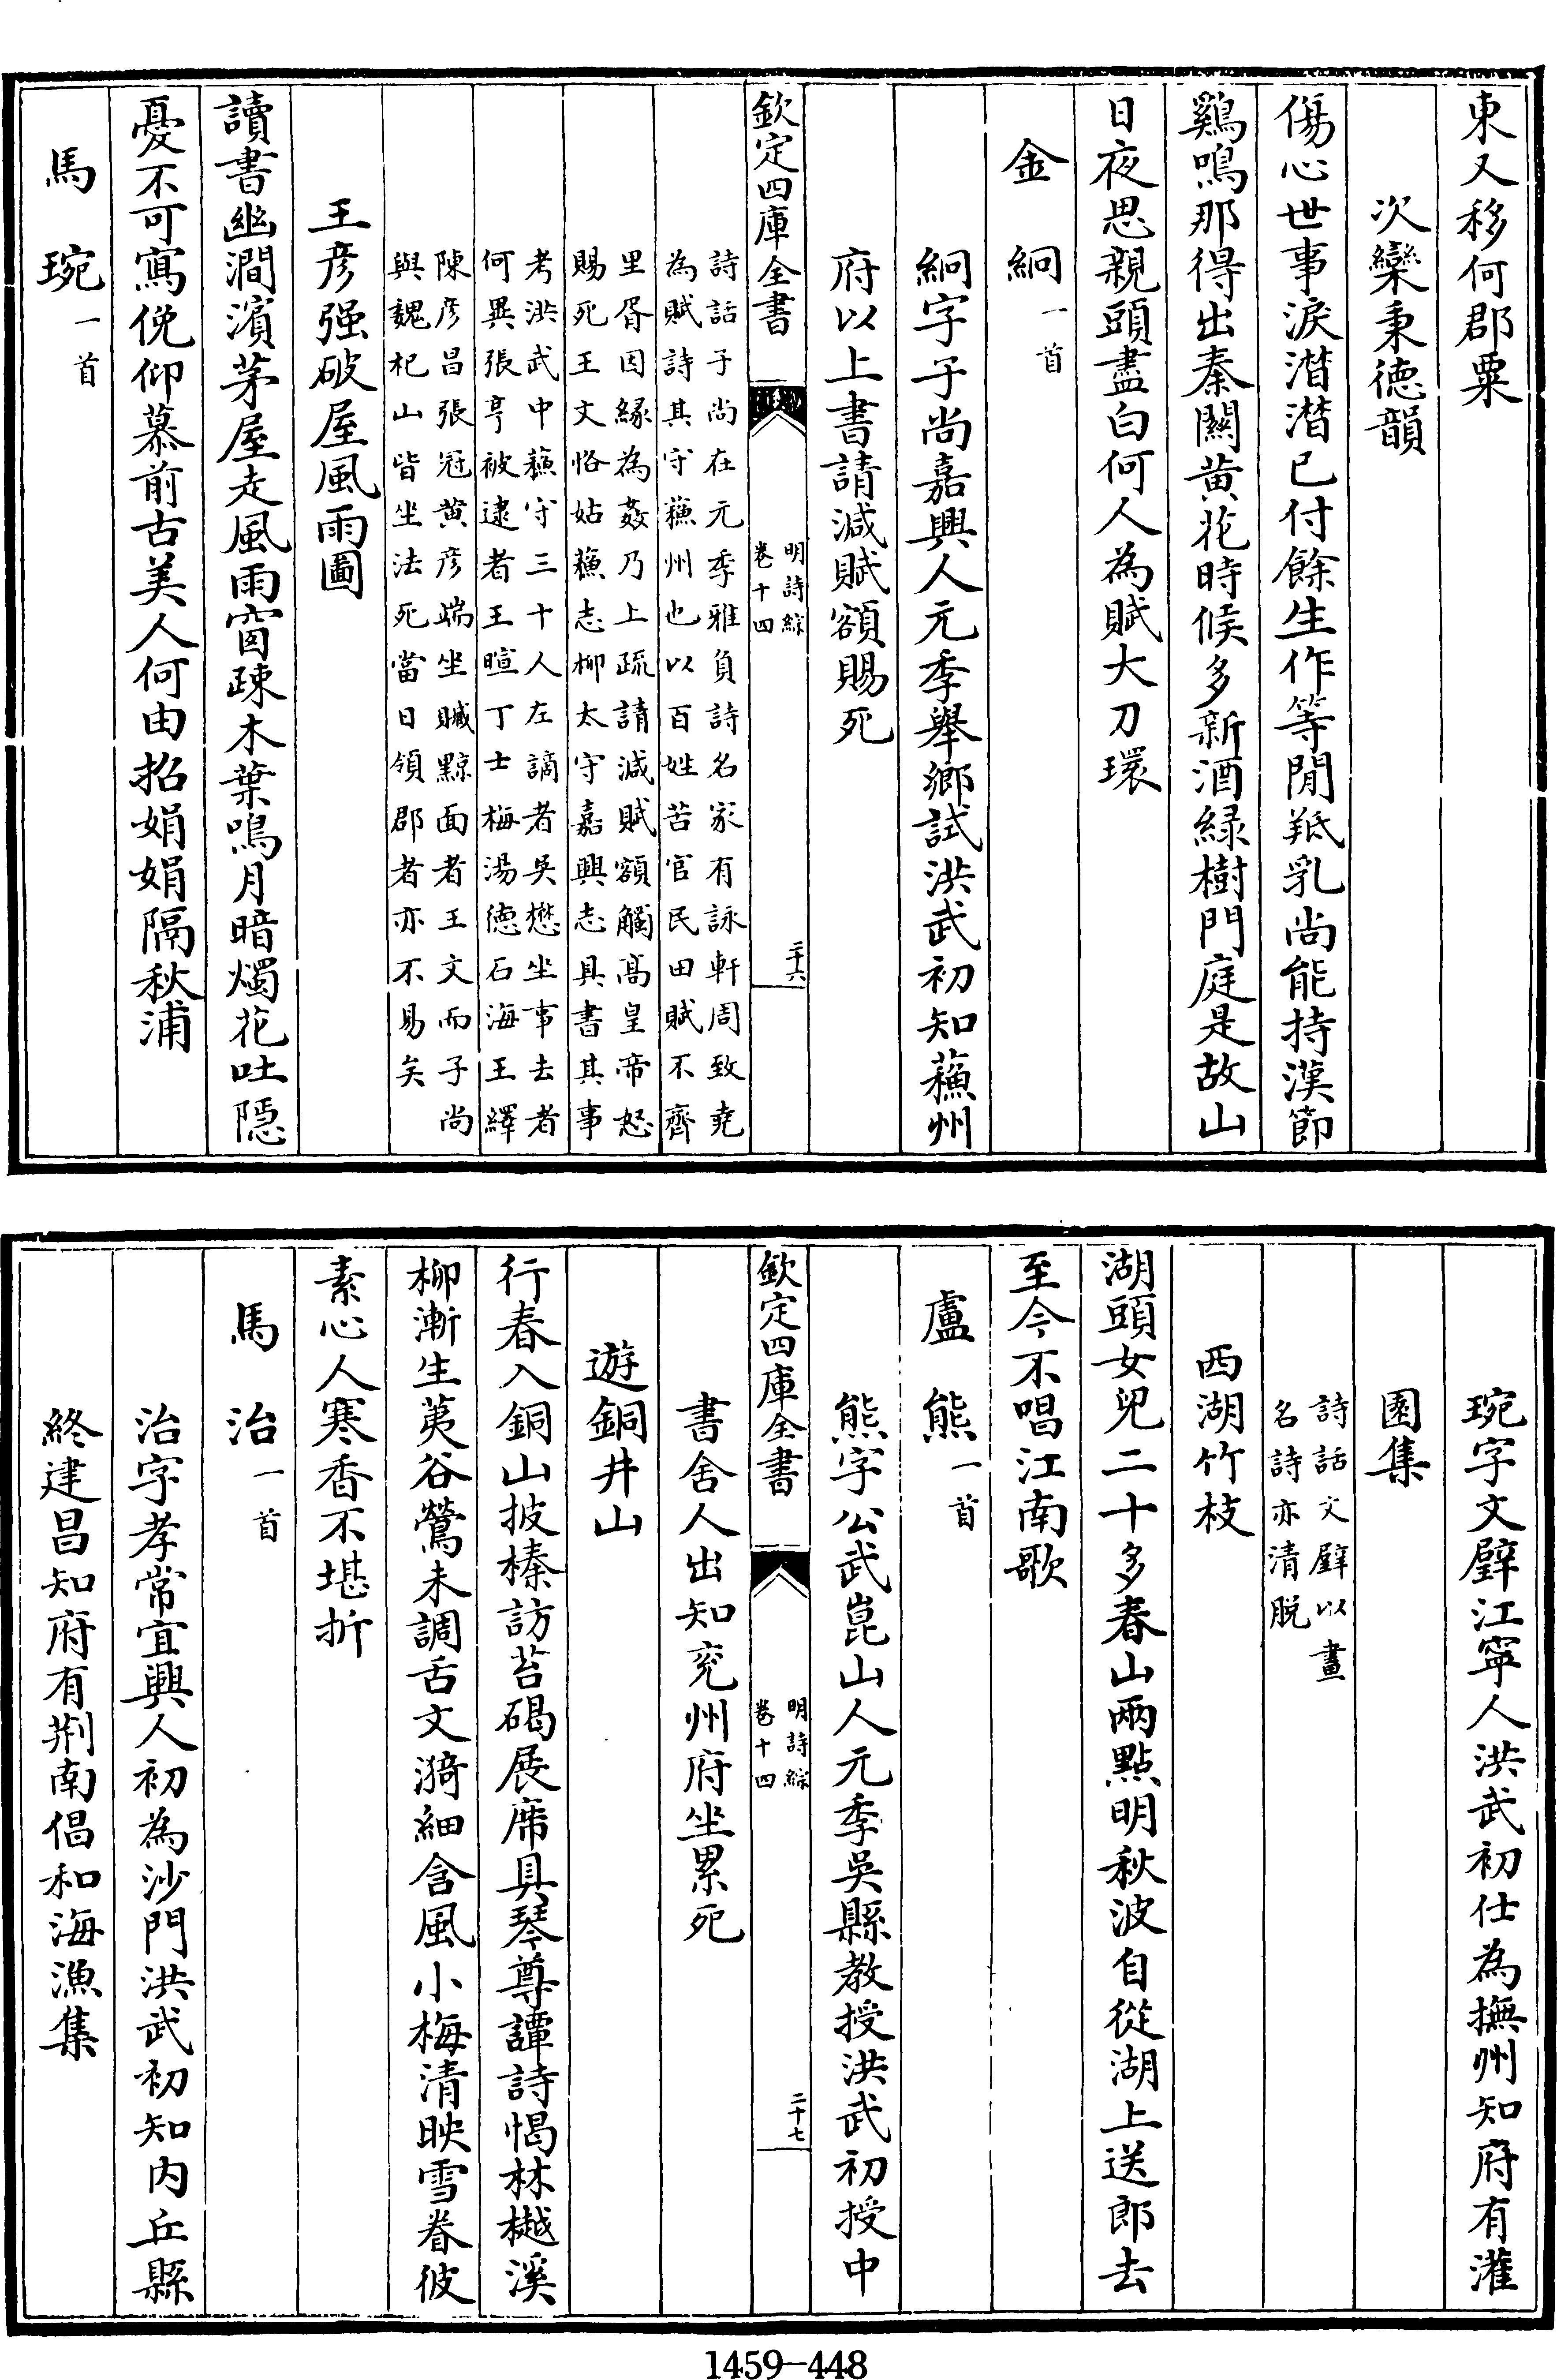 東又移何郡粟
次欒秉德韻
傷心世事淚潸潸已付餘生作等閒羝乳尚能持漢節
鷄鳴那得出秦關黄花時候多新酒緑樹門庭是故山
日夜思親頭盡白何人為賦大刀環
金絅一首
絅字子尚嘉興人元季舉鄉試洪武初知蘓州
府以上書請減賦額賜死
欽定四庫全書
明詩綜
卷十四
二十六
詩話子尚在元季雅負詩名家有詠軒周致堯
為賦詩其守蘓州也以百姓苦官民田賦不齊
里胥因緣為姦乃上疏請減賦額觸髙皇帝怒
賜死王文恪姑蘓志柳太守嘉興志具書其事
考洪武中蘓守三十人左謫者吳懋坐事去者
何異張亨被逮者王暄丁士梅湯德石海王繹
陳彦昌張冠黄彦端坐贓黥面者王文而子尚
與魏杞山皆坐法死當日領郡者亦不易矣
王彦强破屋風雨圖
讀書幽澗濵茅屋走風雨窗疎木葉鳴月暗燭花吐隱
憂不可寫俛仰慕前古美人何由招娟娟隔秋浦
馬琬一首
琬字文璧江寧人洪武初仕為撫州知府有灌
園集
詩話文璧以畫
名詩亦清脱
西湖竹枝
湖頭女兒二十多春山兩點明秋波自從湖上送郎去
至今不唱江南歌
盧熊一首
熊字公武崑山人元季吳縣教授洪武初授中
欽定四庫全書
明詩綜
卷十四
二十七
書舍人出知兖州府坐累死
遊銅井山
行春入銅山披榛訪苔碣展席具琴尊譚詩愒林樾溪
柳漸生荑谷鶯未調舌文漪細含風小梅清映雪眷彼
素心人寒香不堪折
馬治一首
治字孝常宜興人初為沙門洪武初知内丘縣
終建昌知府有荆南倡和海漁集
1459-448